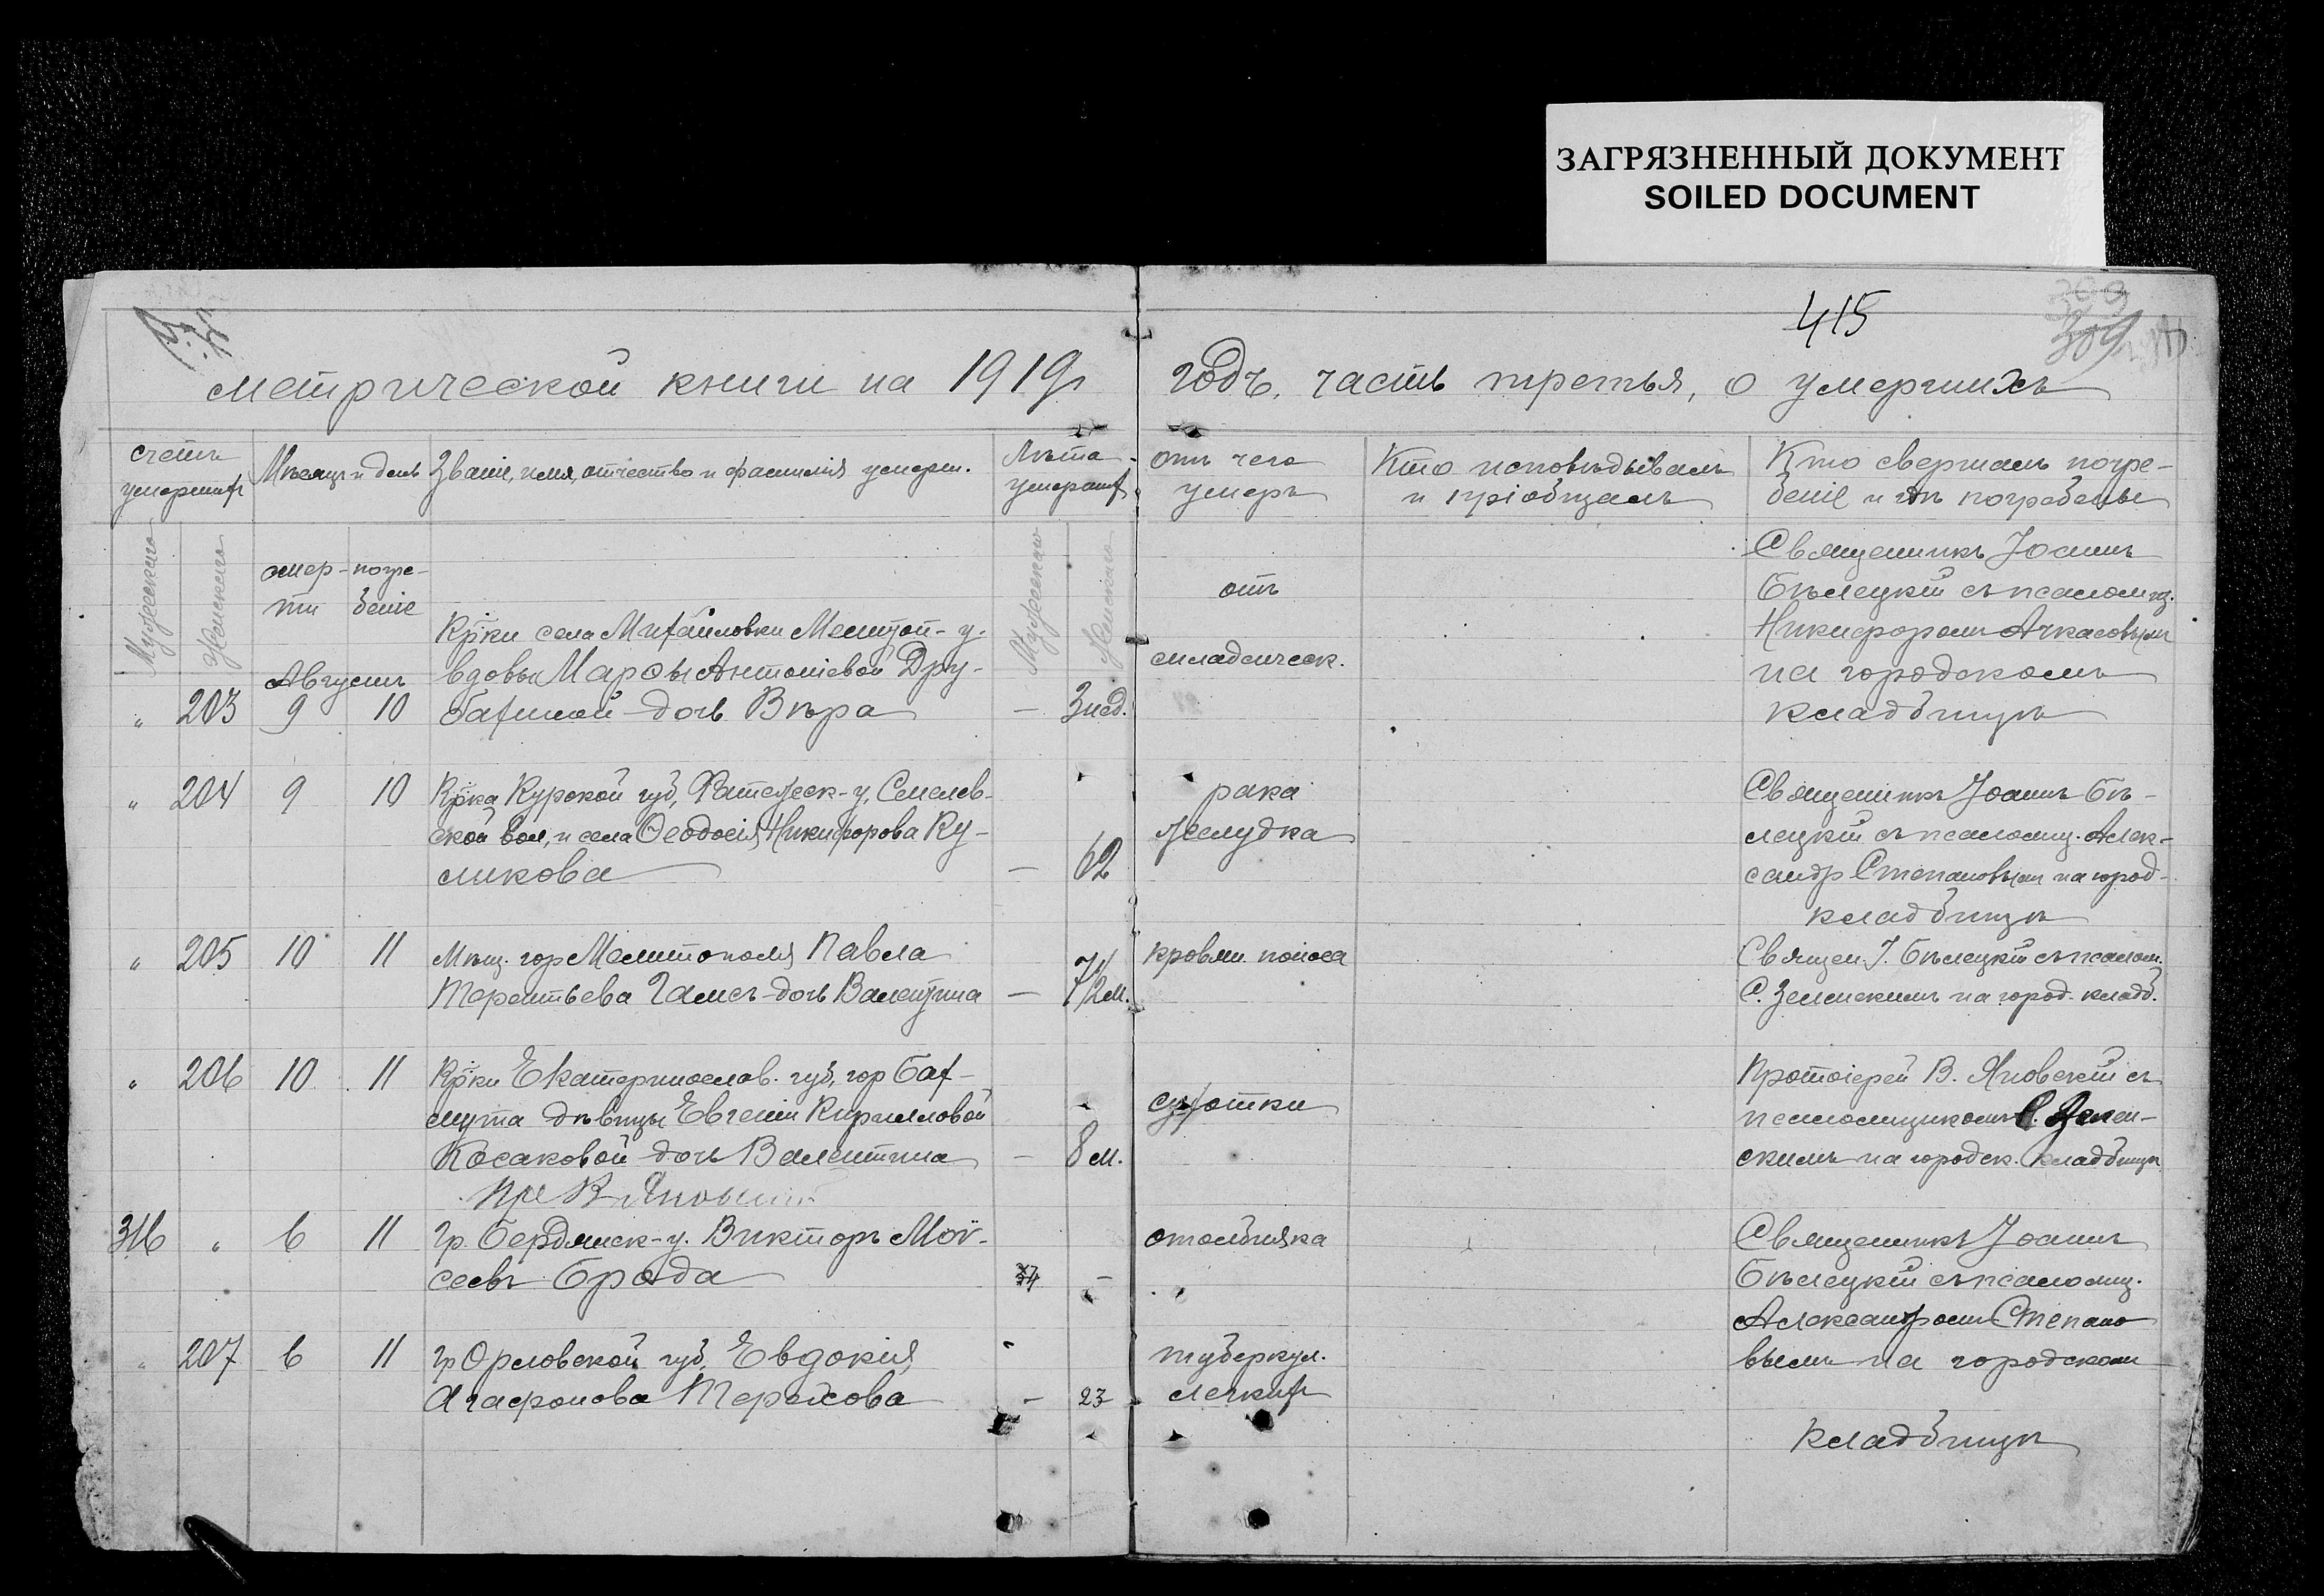 ЗАГРЯЗНЕННЫЙ ДОКУМЕНТ
SOILED DOCUMENT
415
309
метрической книги на 1919 г
годъ, часть третья, о умершихъ
счетъ умершихъ
Мѣсяцъ и день
Званіе, имя, отчество и фамилія умерш.
Лѣта умершихъ
отъ чего умеръ
Кто исповѣдывалъ и пріобщалъ
Кто свершалъ погребеніе и гдѣ погребены
Мужескаго
Женскаго
смерти
погребеніе
Мужескаго
Женскаго
Августъ
" 203 9 10
Кр-ки села Михайловки Мелитоп-у.
вдовы Марѳы Антоніевой Дру-
бахиной дочь Вѣра
— 3 нед.
отъ
младенческ.
Священникъ Іоаннъ
Бѣлецкій съ псаломщ.
Никифоромъ Ачкасовымъ
на городскомъ
кладбищѣ
" 204 9 10
Кр-ка Курской губ, Фатежск-у,
ской вол, и села Ѳеодосія Никифорова Ку-
ликова
— 62
рака
желудка
Священникъ Іоаннъ Бѣ-
лецкій съ псаломщ. Алек-
сандр Степановымъ на город-
кладбищѣ
" 205 10 11
Мѣщ. гор Мелитополя Павла
Терентьева Галис дочь Валентина
—
кровян. поноса
Священ. І. Бѣлецкій съ псалом.
С. Зеленскимъ на город. кладб.
" 206 10 11
Кр-ки Екатеринослав. губ, гор Бах-
мута дѣвицы Евгеніи Кирилловой
Косаковой дочь Валентина
— 8 м.
сухотки
Протоіерей В. Яновскій съ
псаломщикомъ С. Зелен-
скимъ на городск. кладбищѣ
Пр В Яновскій
316 " 6 11
Гр. Бердянск-у. Викторъ Мой-
сеевъ Брада
—
столбняка
Священникъ Іоаннъ
Бѣлецкій съ псаломщ.
Александромъ Степано
вымъ на городском
кладбищѣ
" 207 6 11
гр Орловской губ, Евдокія
Агафонова Терехова
— 23
туберкул.
легкихъ